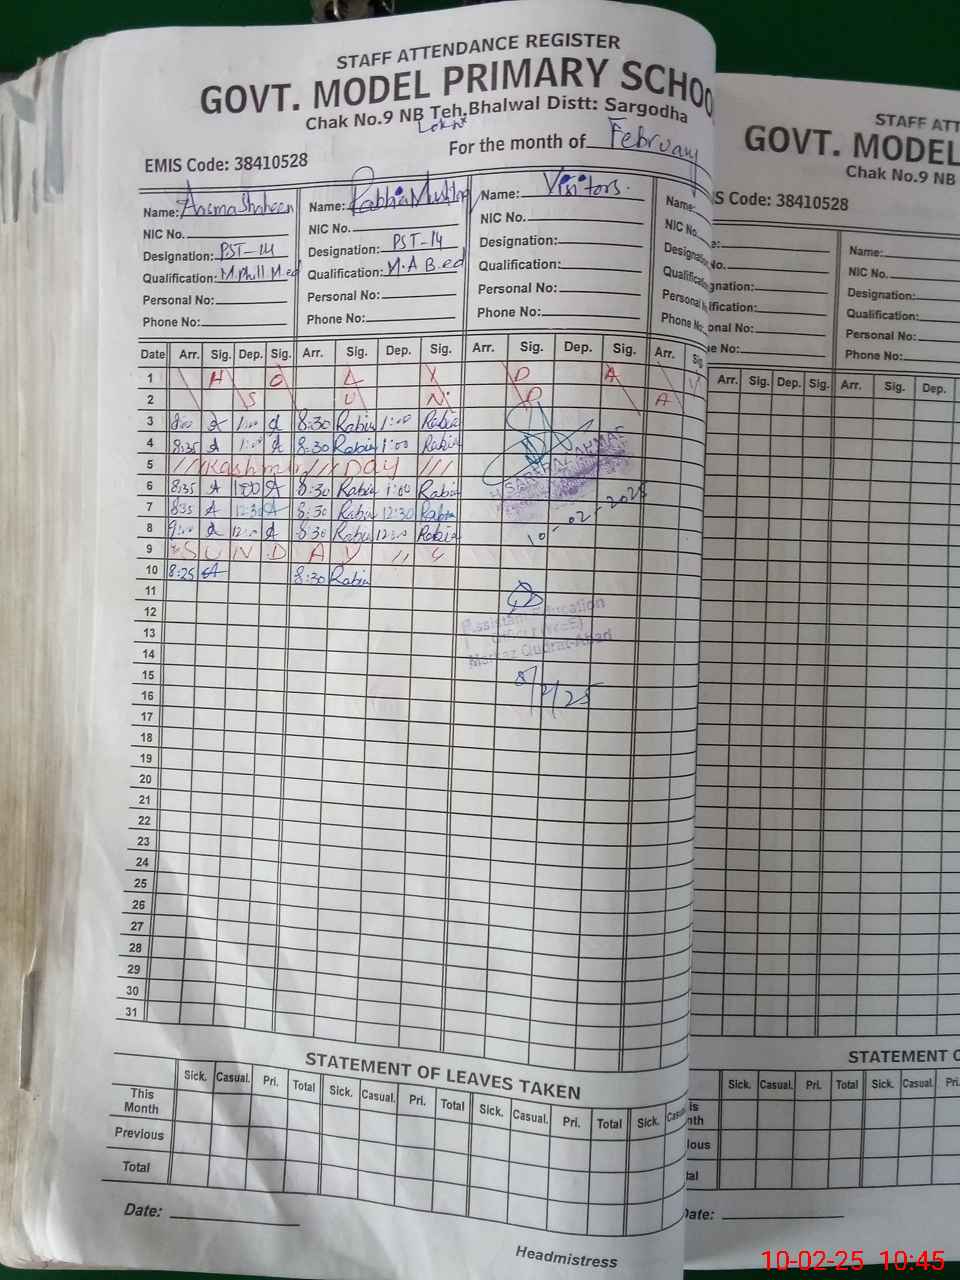 STAFF ATTENDANCE REGISTER
GOVT. MODEL PRIMARY SCHOO
Chak No.9 NB Teh.Bhalwal Distt: Sargodha
EMIS Code: 38410528 For the month of February
Name: Asma Shaheen
NIC No.
Designation: PST-14
Qualification: M.Phill M.ed
Personal No:
Phone No:
Name: Rabia
NIC No.
Designation: PST-14
Qualification: M.A B.ed
Personal No:
Phone No:
Name: Visitors.
NIC No.
Designation:
Qualification:
Personal No:
Phone No:
Name:
NIC No.
Date Arr. Sig. Dep. Sig. Arr. Sig. Dep. Sig. Arr. Sig. Dep. Sig. Arr. Sig
1 H O L I D A Y
2 S U N D A
3 8:00 A 1:00 A 8:30 Rabia 1:00 Rabia
4 8:35 A 1:00 A 8:30 Rabia 1:00 Rabia
5 Kashmir Day
6 8:35 A 1:00 A 8:30 Rabia 1:00 Rabia
7 8:35 A 12:30 A 8:30 Rabia 12:30 Rabia
8 9:00 A 12:00 A 8:30 Rabia 12:00 Rabia
9 S U N D A Y
10 8:25 A 8:30 Rabia
10-02-2025
11
12
13
Markaz Qudrat-Abad
14
15
8/2/25
16
17
18
19
20
21
22
23
24
25
26
27
28
29
30
31
STATEMENT OF LEAVES TAKEN
Sick. Casual. Pri. Total Sick. Casual. Pri. Total Sick. Casual. Pri. Total Sick. Casual
This Month
Previous
Total
Date:
Headmistress
STAFF ATT
GOVT. MODEL
Chak No.9 NB
S Code: 38410528
Name:
NIC No.
Designation:
Qualification:
Personal No:
Phone No:
Arr. Sig. Dep. Sig. Arr. Sig. Dep.
STATEMENT O
Sick. Casual. Pri. Total Sick. Casual. Pri.
10-02-25 10:45